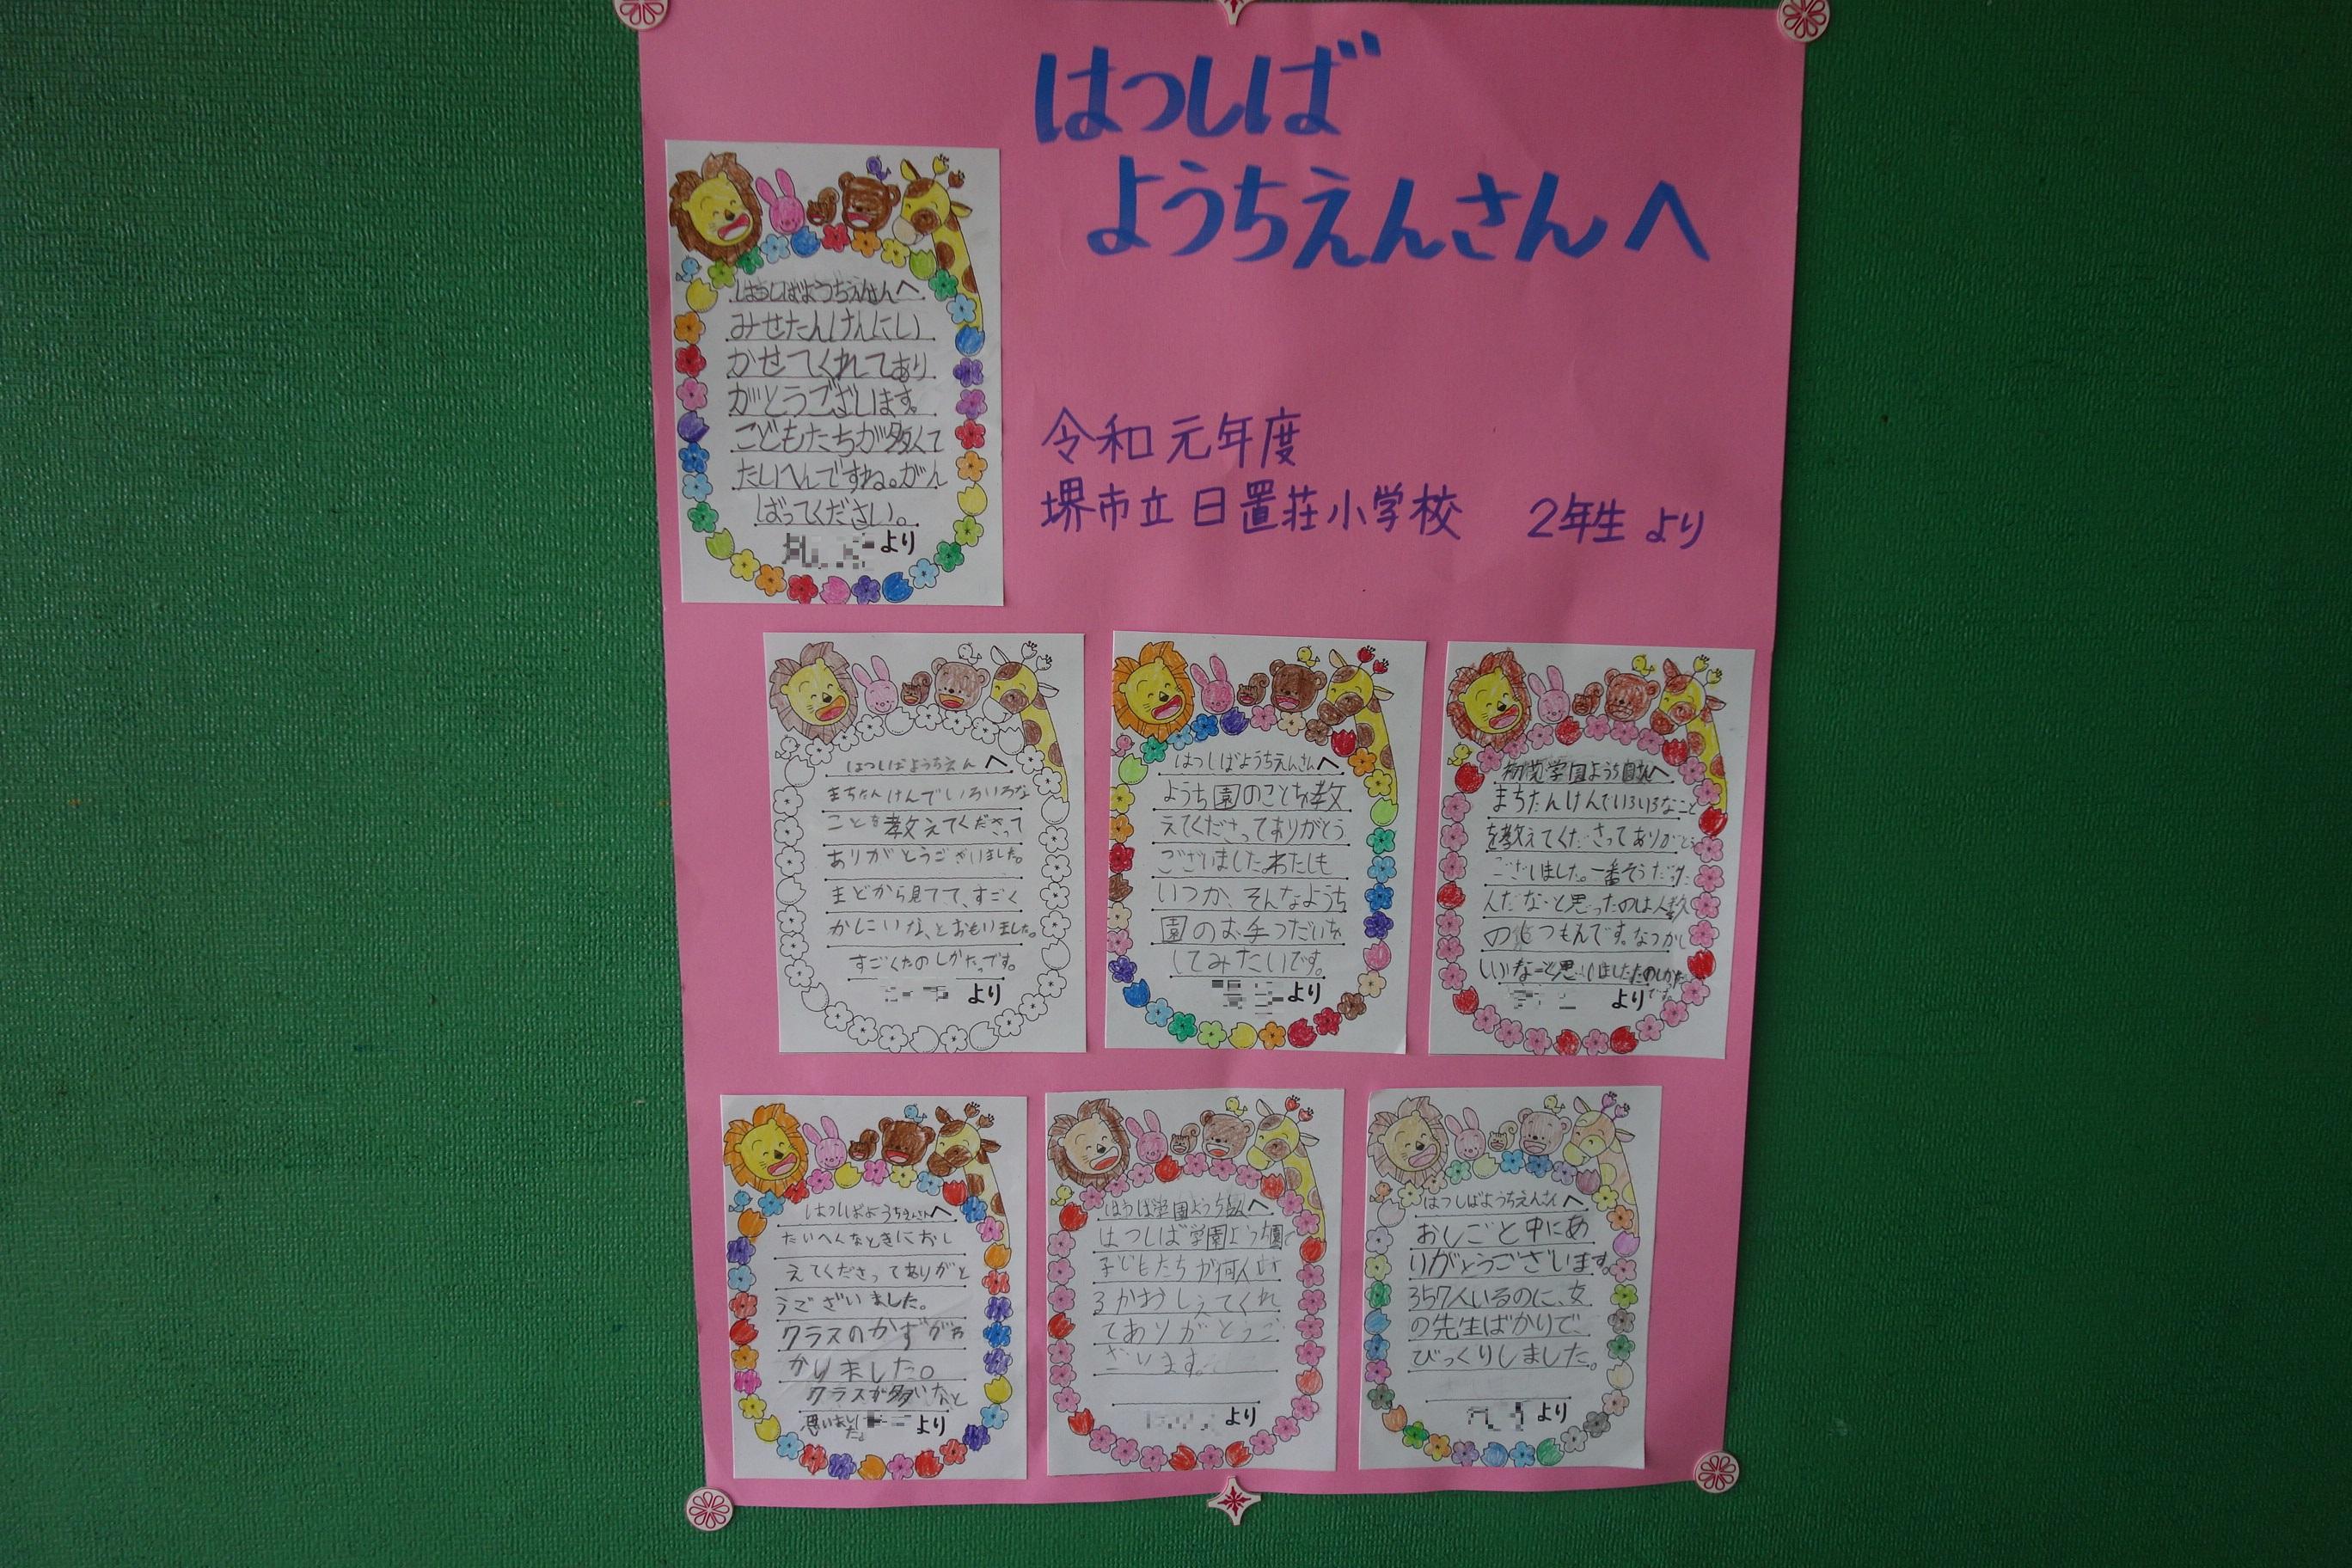 はつしば
ようちえんさんへ
令和元年度
堺市立日置荘小学校 2年生より
はつしばようちえんさんへ
みせたんけんにい
かせてくれてあり
がとうございます。
こどもたちが多くて
たいへんですね。がん
ばってください。
より
はつしばようちえんへ
まちたんけんでいろいろな
ことを教えてくださって
ありがとうございました。
まどから見てて、すごく
かしこいな、とおもいました。
すごくたのしかったです。
より
はつしばようちえんさんへ
ようち園のことを教
えてくださってありがとう
ございました。わたしも
いつか、そんなようち
園のお手つだいを
してみたいです。
より
初芝学園ようち園さんへ
まちたんけんでいろいろなこと
を教えてくださってありがとう
ございました。一番そうだった
んだなーと思ったのは人数
のしつもんです。なつかし
いなーと思いましたたのしかった
です。
より
はつしばようちえんさんへ
たいへんなときにおし
えてくださってありがと
うございました。
クラスのかずがわ
かりました。
クラスが多いなと
思いまし
た。
より
はつしば学園ようち園へ
はつしば学園ようち園で
子どもたちが何人い
るかおしえてくれ
てありがとうご
ざいます。
より
はつしばようちえんさんへ
おしごと中にあ
りがとうございます。
357人いるのに、女
の先生ばかりで、
びっくりしました。
より